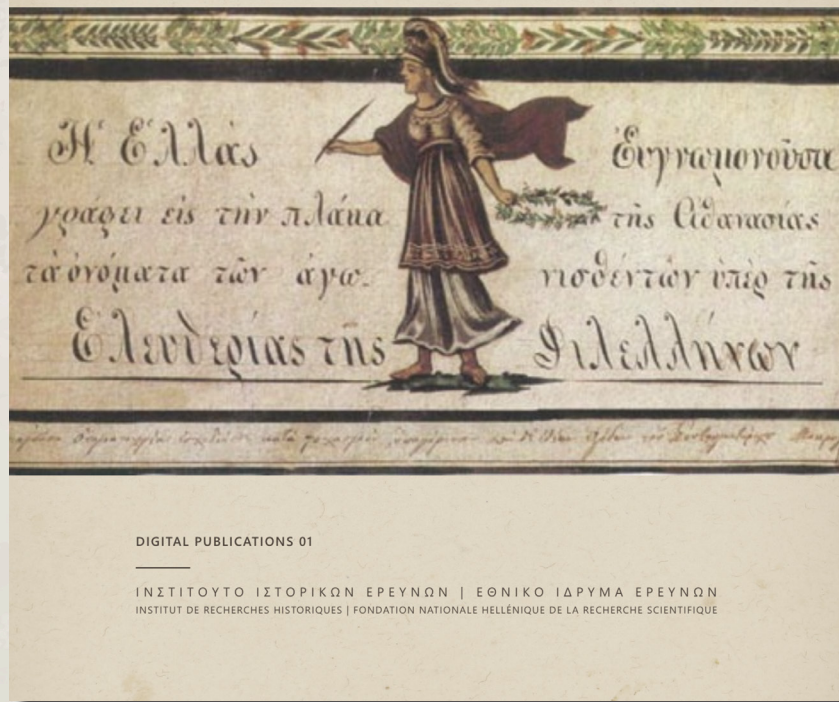 Ἡ Ἑλλὰς Εὐγνωμονοῦσα
γράφει εἰς τὴν πλάκα τῆς Ἀθανασίας
τὰ ὀνόματα τῶν ἀγω- νισθέντων ὑπὲρ τῆς
Ἐλευθερίας της Φιλελλήνων
DIGITAL PUBLICATIONS 01
ΙΝΣΤΙΤΟΥΤΟ ΙΣΤΟΡΙΚΩΝ ΕΡΕΥΝΩΝ | ΕΘΝΙΚΟ ΙΔΡΥΜΑ ΕΡΕΥΝΩΝ
INSTITUT DE RECHERCHES HISTORIQUES | FONDATION NATIONALE HELLÉNIQUE DE LA RECHERCHE SCIENTIFIQUE